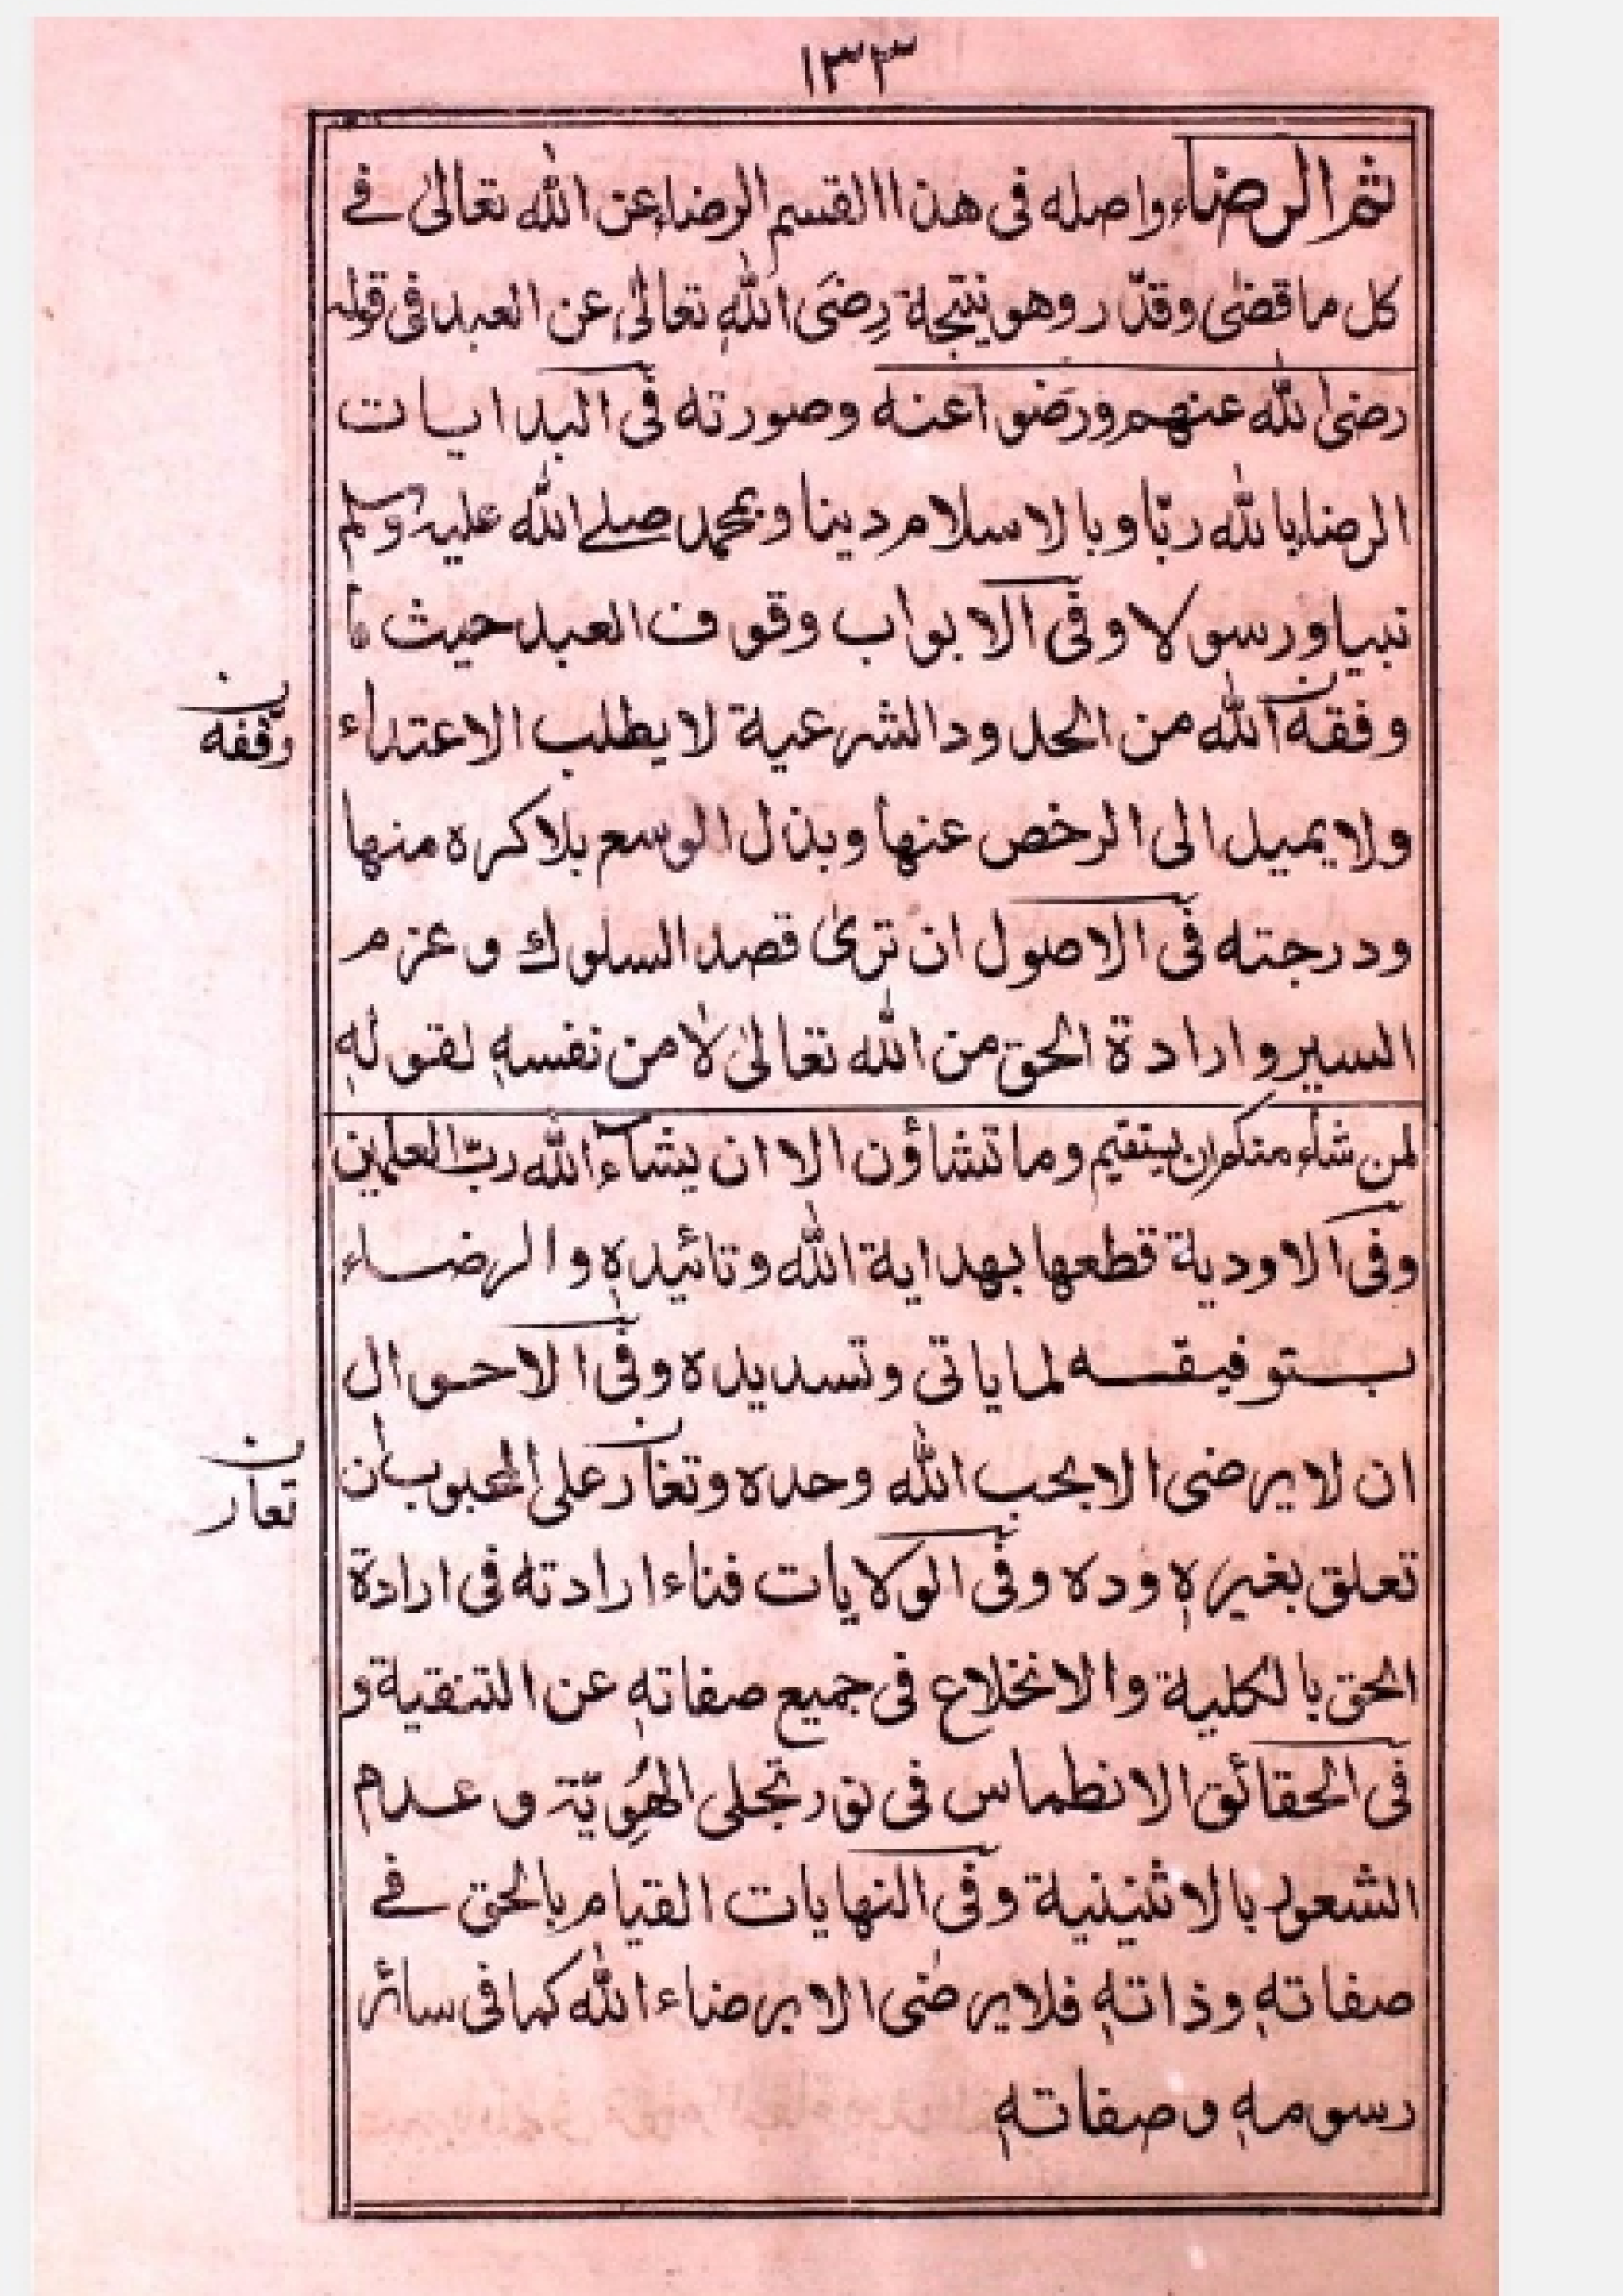 ١٣٣
ثم الرضاء واصله فى هذا القسم الرضاء عن الله تعالىٰ فے
كل ما قضىٰ وقدّر وهو نتيجة رِضَى اللهِ تعالىٰ عن العبد فى قوله
رضى الله عنهم ورضوا عنه وصورته فى البدايات
الرضا بالله ربّا وبالاسلام دينا وبمحمد صلے الله عليه وسلم
نبيا ورسولا وفى الابواب وقوف العبد حيث ما
وفقه الله من الحدود الشرعية لا يطلب الاعتداء
وقفه
ولا يميل الى الرخص عنها وبذل الوسع بلا كره منها
ودرجته فى الاصول ان ترىٰ قصد السلوك وعزم
السير وارادة الحق من الله تعالىٰ لا من نفسهٖ لقولهٖ
لمن شاء منكم ان يستقيم وما تشاؤن الا ان يشآء الله ربّ العلمين
وفى الاودية قطعها بهداية الله وتائيدهٖ والرضاء
بتوفيقه لما ياتى وتسديده وفى الاحوال
ان لا يرضى الا بحب الله وحده وتغار على المحبوب ان
تعار
تعلق بغيرهٖ وده وفى الولايات فناء ارادته فى ارادة
الحق بالكلية والانخلاع فى جميع صفاتهٖ عن التنقية و
فى الحقائق الانطماس فى نور تجلى الهُوِيّة وعدم
الشعور بالاثنينية وفى النهايات القيام بالحق فے
صفاتهٖ وذاتهٖ فلا يرضٰى الا برضاء الله كما فى سائر
رسومهٖ وصفاتهٖ